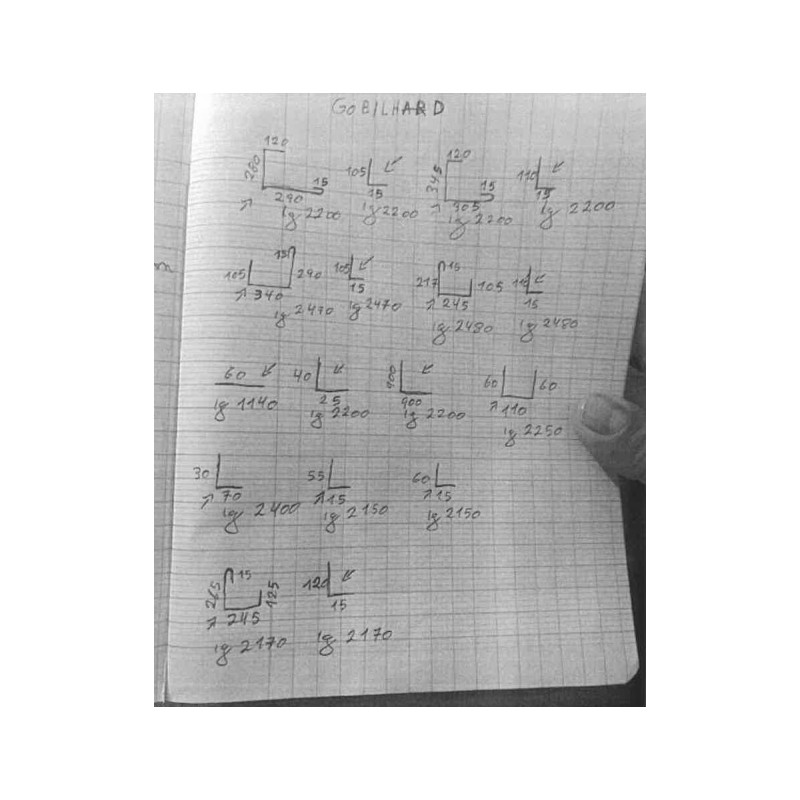 GOBILHARD
120 120
280 15 105 345 15 110
290 15 905 15
lg 2200 lg 2200 lg 2200 lg 2200
15 15
105 290 105 217 105 110
340 15 245 15
lg 2470 lg 2470 lg 2480 lg 2480
60 40 980 60 60
25 900 110
lg 1140 lg 2200 lg 2200 lg 2250
30 55 60
70 15 15
lg 2400 lg 2150 lg 2150
265 15 125 120
245 15
lg 2170 lg 2170